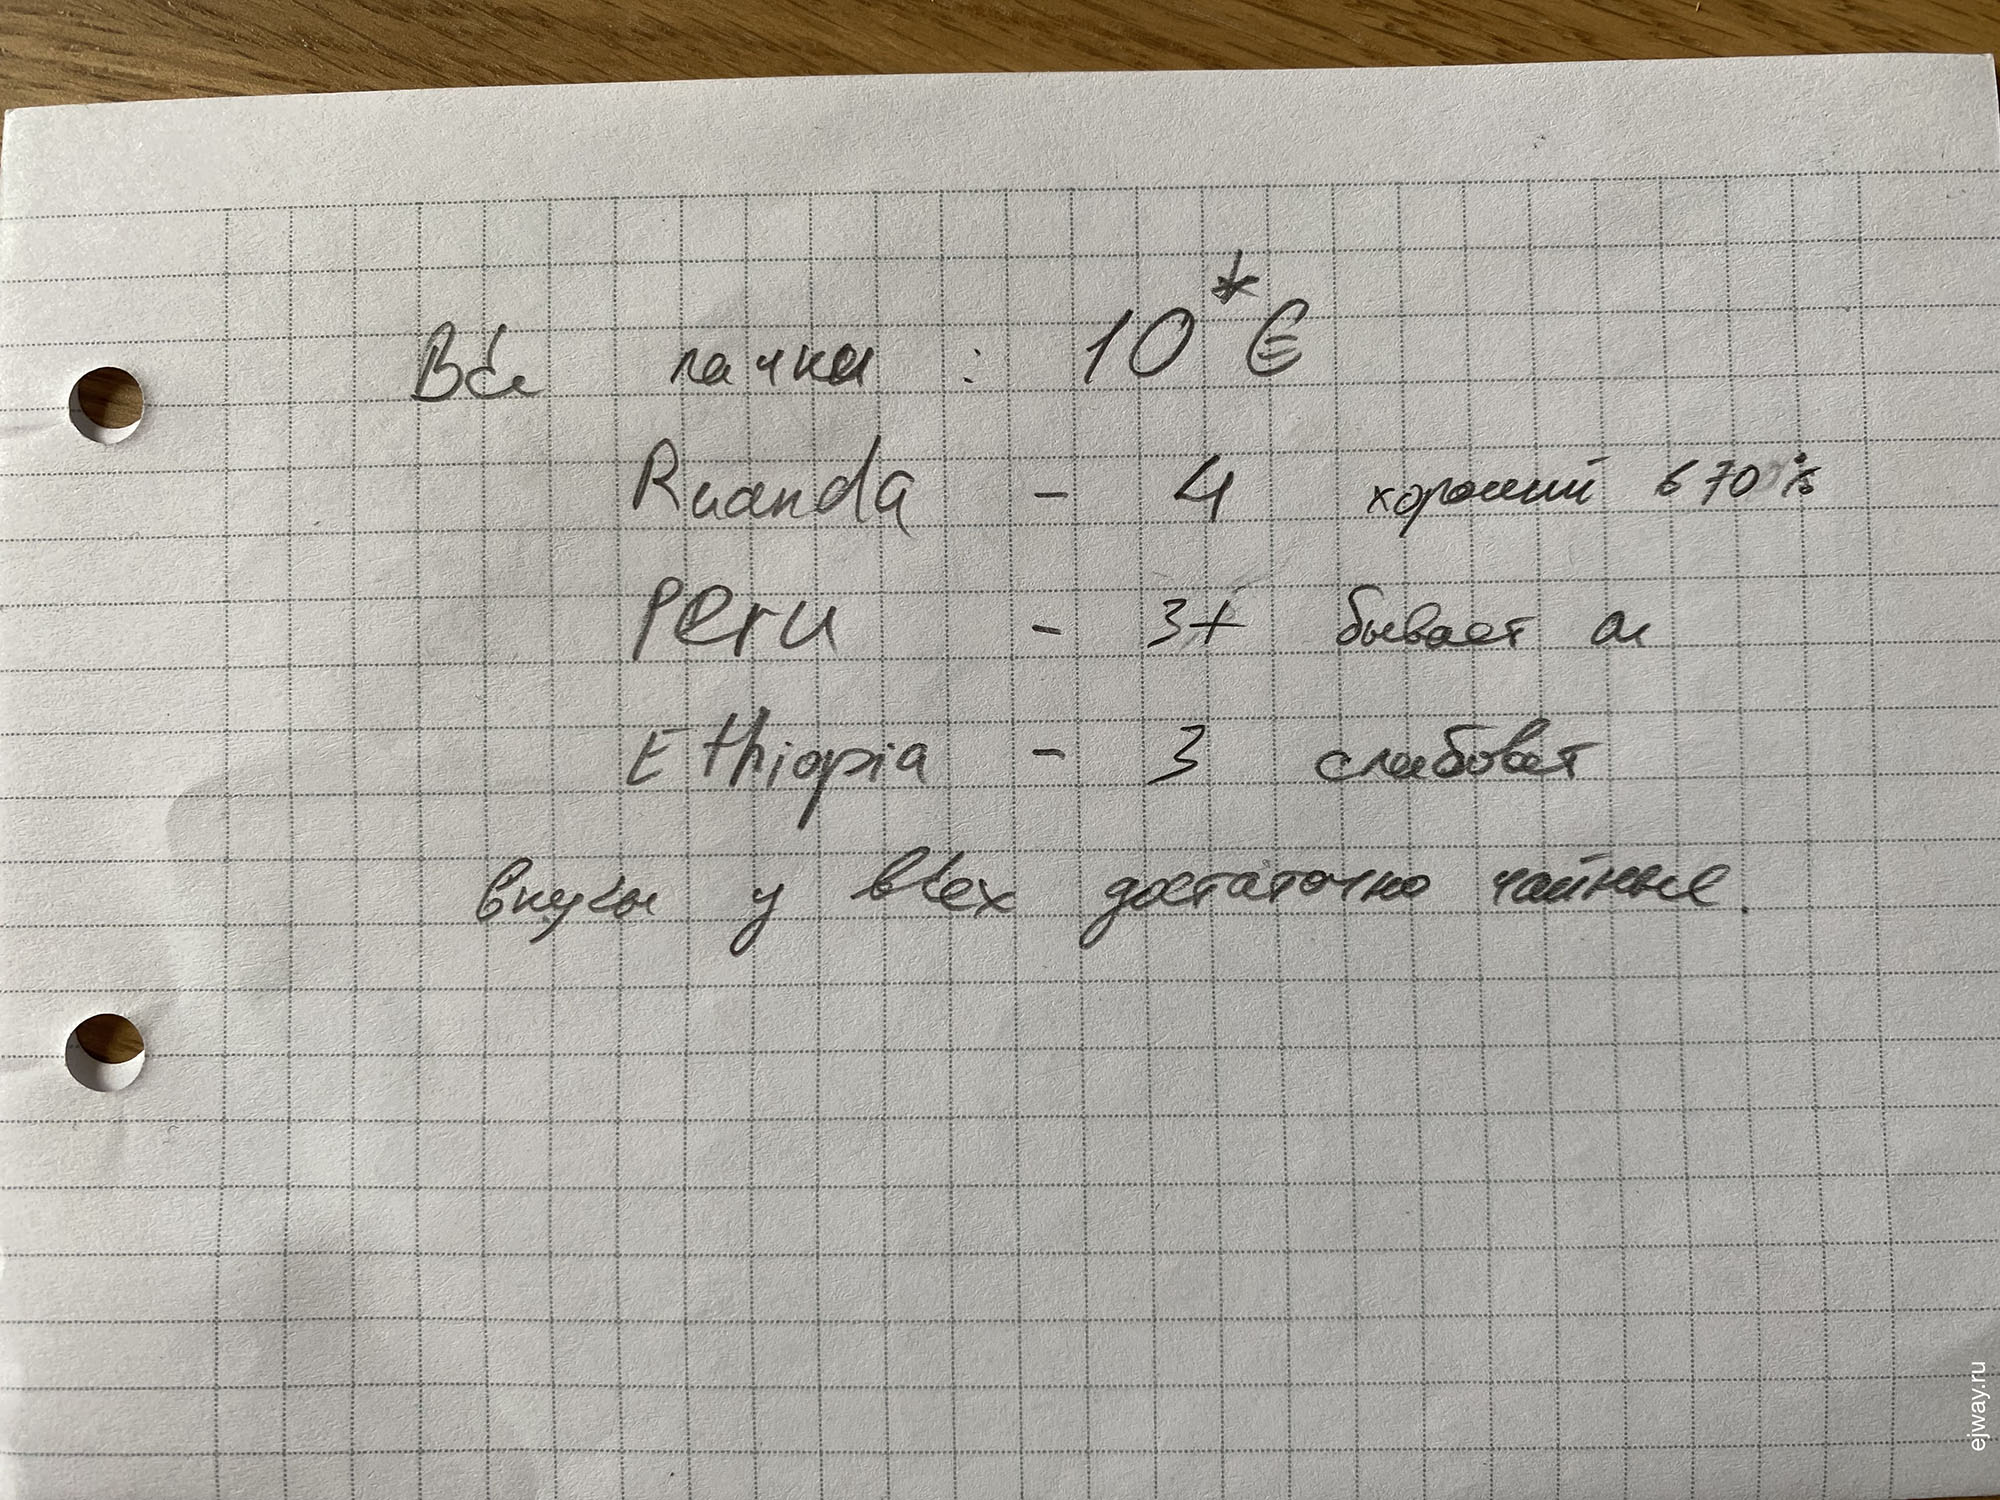 Все пачки : 10*€
Ruanda - 4 хороший в 70%
Peru - 3+ бывает ок
Ethiopia - 3 слабоват
вкусы у всех достаточно чайные.
ejway.ru